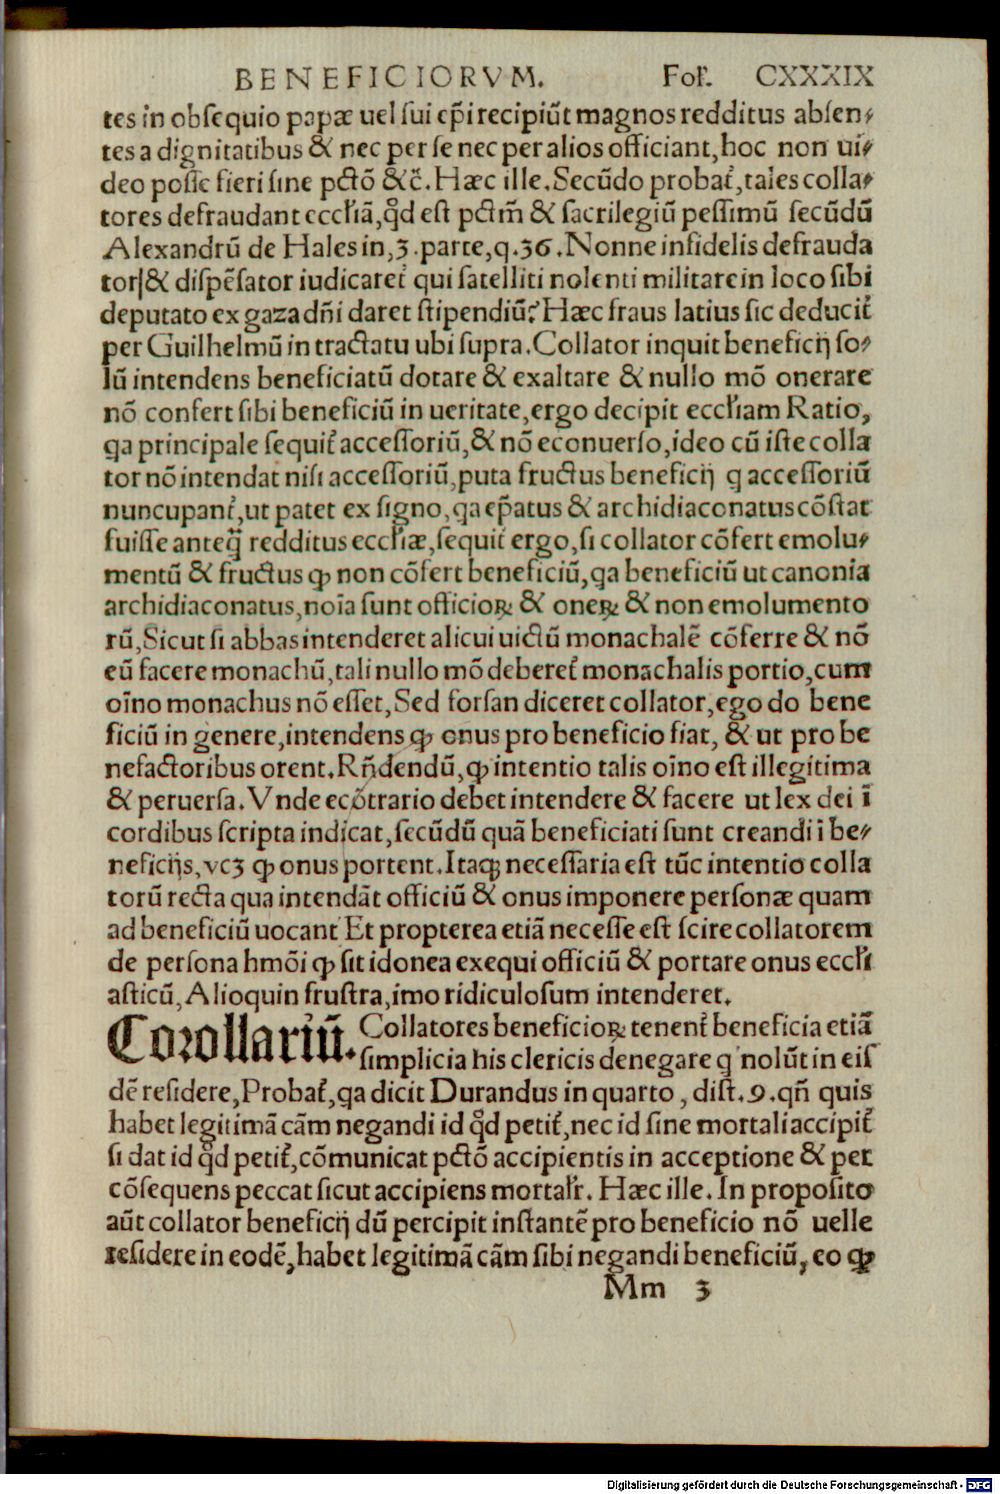 BENEFICIORVM. Fol̉. CXXXIX
tes in obsequio papæ uel sui ep̄i recipiũt magnos redditus absen⸗
tes a dignitatibus & nec per se nec per alios officiant, hoc non ui⸗
deo posse fieri sine pctõ &c̃. Hæc ille. Secũdo probat̉, tales colla⸗
tores defraudant eccl̉iã, qd̉ est pctm̃ & sacrilegiũ pessimũ secũdũ
Alexandrũ de Hales in, 3. parte, q. 36. Nonne infidelis defrauda
tor|& dispẽsator iudicaret̉ qui satelliti nolenti militare in loco sibi
deputato ex gaza dñi daret stipendiũ? Hæc fraus latius sic deducit̉
per Guilhelmũ in tractatu ubi supra. Collator inquit beneficij so⸗
lũ intendens beneficiatũ dotare & exaltare & nullo mõ onerare
nõ confert sibi beneficiũ in ueritate, ergo decipit eccl̉iam Ratio,
qa principale sequit̉ accessoriũ, & nõ econuerso, ideo cũ iste colla
tor nõ intendat nisi accessoriũ, puta fructus beneficij q accessoriũ
nuncupant̉, ut patet ex signo, qa ep̃atus & archidiaconatus cõstat
fuisse anteq̃ redditus eccl̉iæ, sequit̉ ergo, si collator cõfert emolu⸗
mentũ & fructus ꝙ non cõfert beneficiũ, qa beneficiũ ut canonia
archidiaconatus, noīa sunt officioꝝ & oneꝝ & non emolumento
rũ, Sicut si abbas intenderet alicui uictũ monachalẽ cõferre & nõ
eũ facere monachũ, tali nullo mõ deberet̉ monachalis portio, cum
oīno monachus nõ esset, Sed forsan diceret collator, ego do bene
ficiũ in genere, intendens ꝙ onus pro beneficio fiat, & ut pro be
nefactoribus orent. Rñdendũ, ꝙ intentio talis oīno est illegitima
& peruersa. Vnde ecõtrario debet intendere & facere ut lex dei ī
cordibus scripta indicat, secũdũ quã beneficiati sunt creandi i be⸗
neficijs, vcʒ ꝙ onus portent. Itaqʒ necessaria est tũc intentio colla
torũ recta qua intendãt officiũ & onus imponere personæ quam
ad beneficiũ uocant Et propterea etiã necesse est scire collatorem
de persona hmõi ꝙ sit idonea exequi officiũ & portare onus eccl̉i
asticũ, Alioquin frustra, imo ridiculosum intenderet.
Corollariũ. Collatores beneficioꝝ tenent̉ beneficia etiã
simplicia his clericis denegare q nolũt in eis
dẽ residere, Probat̉, qa dicit Durandus in quarto, dist. 9. qñ quis
habet legitimã cãm negandi id qd̉ petit̉, nec id sine mortali accipit̉
si dat id qd̉ petit̉, cõmunicat pctõ accipientis in acceptione & per
cõsequens peccat sicut accipiens mortal̉r. Hæc ille. In proposito
aũt collator beneficij dũ percipit instantẽ pro beneficio nõ uelle
residere in eodẽ, habet legitimã cãm sibi negandi beneficiũ, eo ꝙ
Mm 3
Digitalisierung gefördert durch die Deutsche Forschungsgemeinschaft - DFG